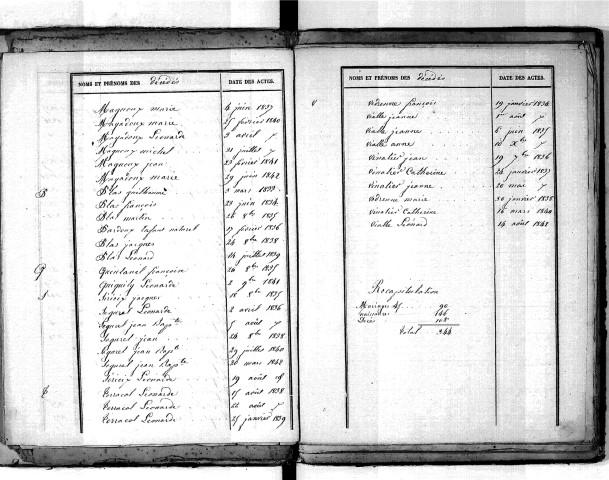 NOMS ET PRÉNOMS DES Décédés DATE DES ACTES.
Magnoux marie 4 juin 1837
Mazadoux marie 25 février 1840
Mazadoux Léonarde 3 avril
Magnoux michel 21 juillet
Magnoux jean 23 février 1841
Mazadoux marie 29 juin 1842
B Blas guilhaume 3 mars 1833
Blas françois 23 juin 1834
Blas martin 26 8bre 1835
Bardoux enfant naturel 17 février 1836
Blas jacques 24 8bre 1838
Blas Léonard 14 juillet 1839
Q Quintanel françoise 26 8bre 1835
Quiquily Léonarde 2 9bre 1841
S jacques 18 8bre 1835
Seguret Léonarde 2 avril 1836
Seguret jean Bapte 5 août
Seguret jean 24 8bre 1838
Seguret jean Bapte 29 juillet 1840
Seguret jean Bapte 20 mars 1842
Léonarde 19 août id
T Terracol Léonarde 15 août 1838
Terracol Léonarde 22 août
Terracol Léonarde 25 janvier 1839
NOMS ET PRÉNOMS DES Décédés DATE DES ACTES.
V Védrenne françois 19 janvier 1834
Vialle jeanne 1er août
Vialle jeanne 6 juin 1835
Vialle anne 10 Xbre
Vinatier jean 19 7bre 1836
Vinatier Catherine 24 janvier 1837
Vinatier jeanne 20 mai
Védrenne marie 20 janvier 1838
Vinatier Catherine 16 mars 1840
Vialle Léonard 14 août 1842
Recapitulation
Mariages 45 90
naissances 146
Décès 108
Total 344